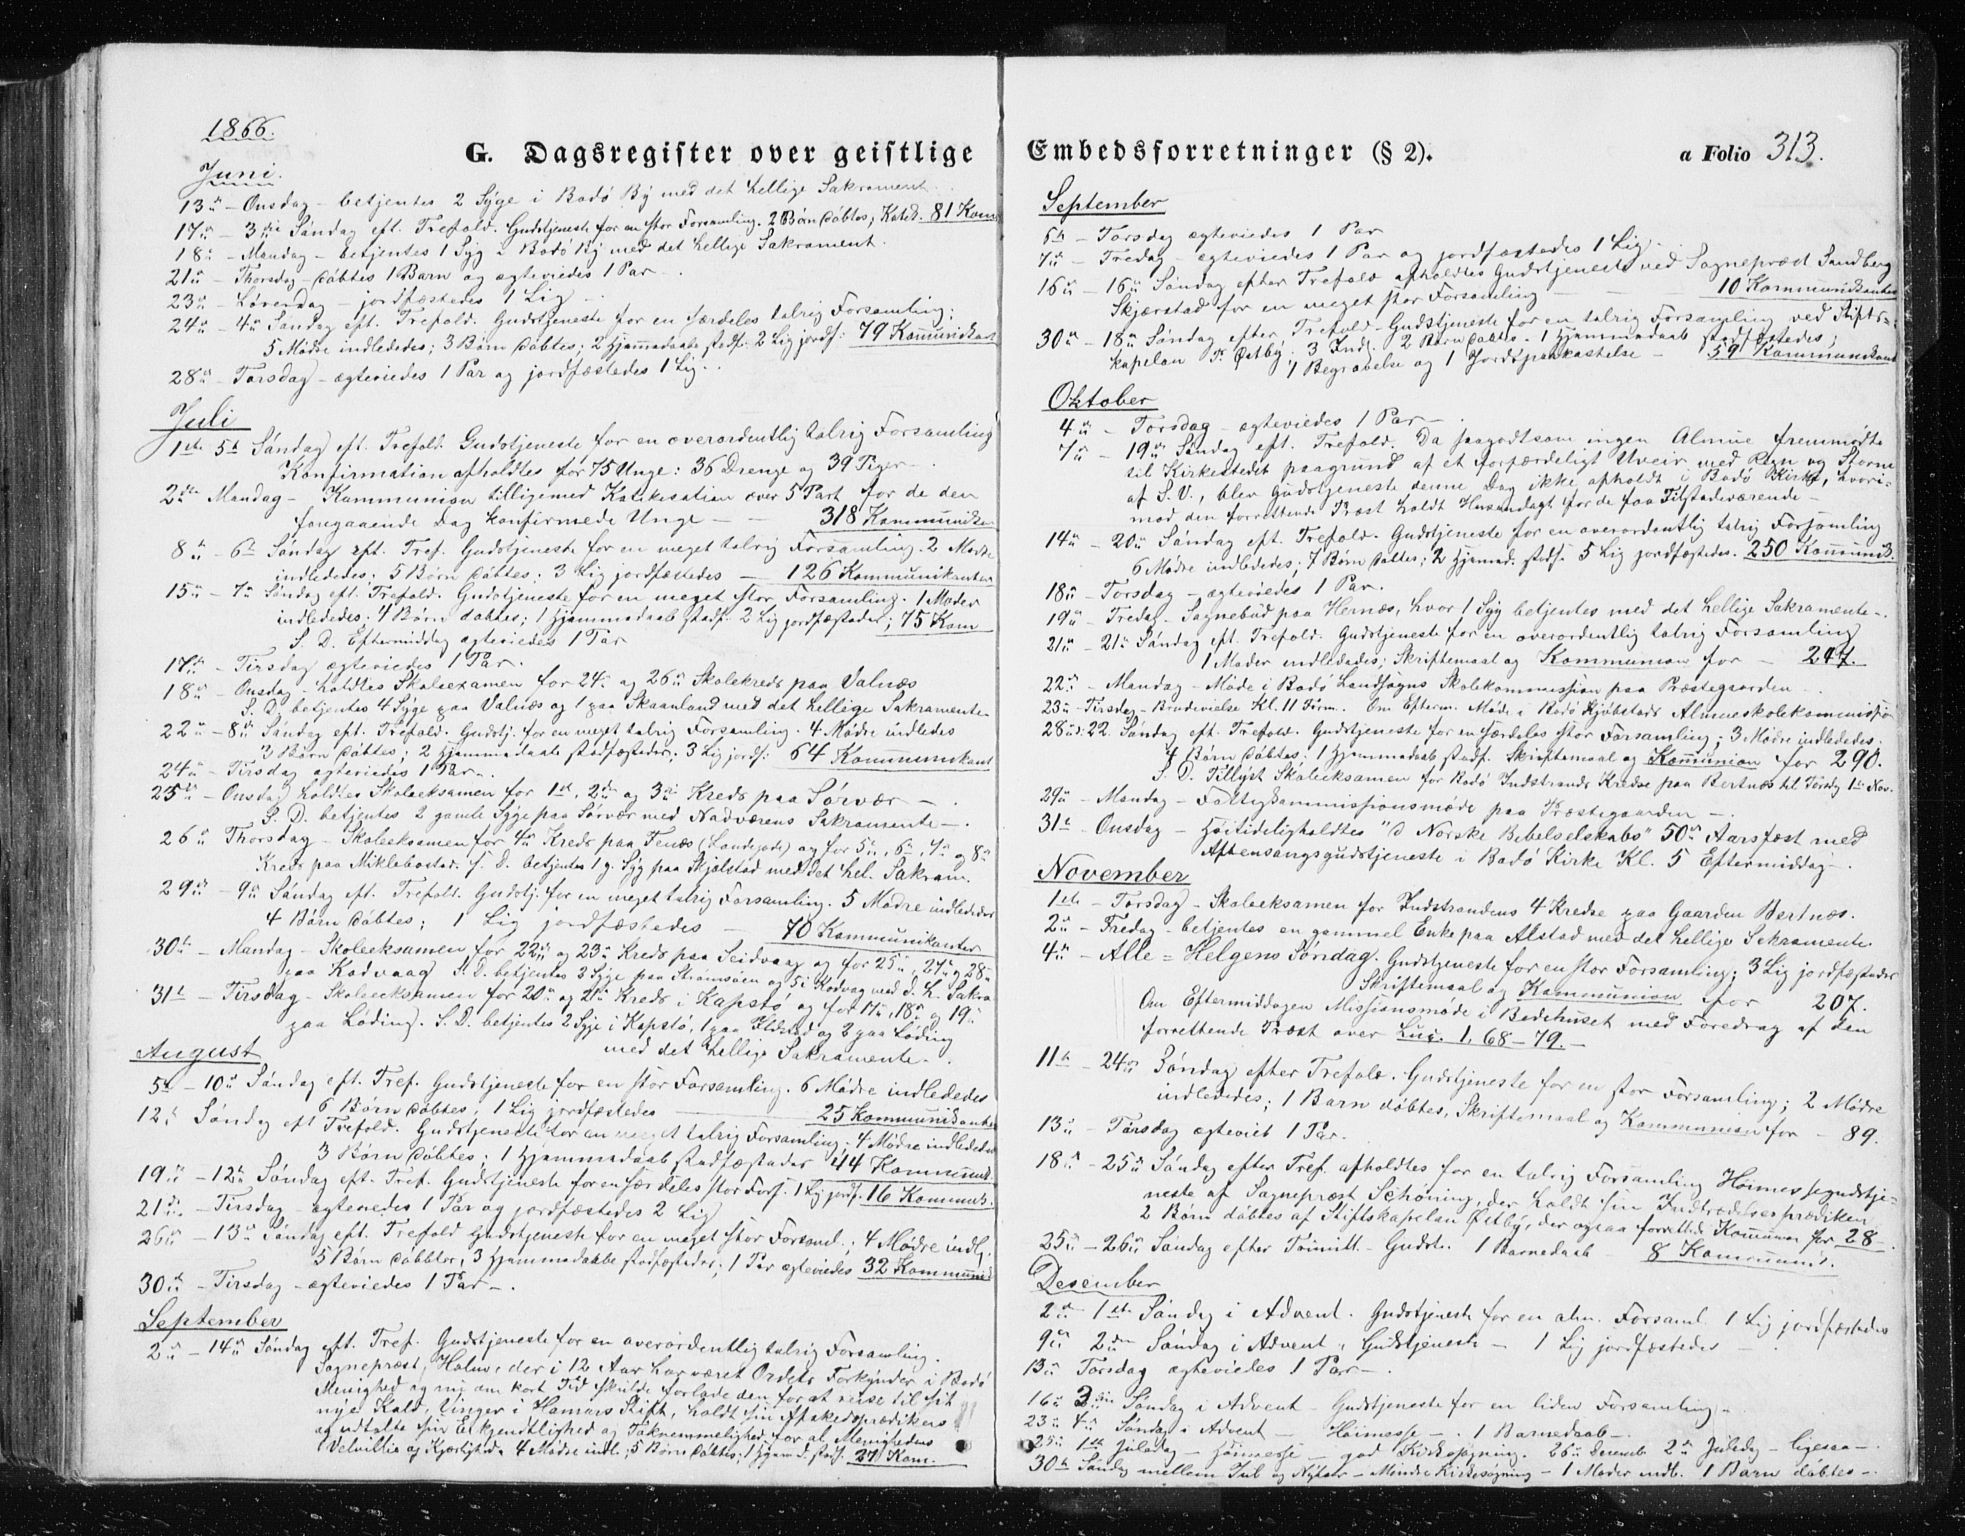 1866.
G. Dagsregister over geistlige
Juni.
13de - Onsdag - betjentes 2 Syge i Bodø By med det hellige Sakrament.
17de - 3die Søndag eft. Trefold. Gudstjeneste for en stor Forsamling. 2 Børn døbtes; Katek. 81 Kom
18de - Mandag - betjentes 1 Syg i Bodø By med det hellige Sakrament.
21de - Thorsdag - døbtes 1 Barn og ægteviedes 1 Par -
23de - Løverdag - jordfæstedes 1 Lig -
24de - 4de Søndag eft. Trefold. Gudstjeneste for en særdeles talrig Forsamling;
5 Mødre indlededes; 3 Børn døbtes; 2 Hjemmedaab stadf. 2 Lig jordf: 79 Kommunikant
28de - Torsdag - ægteviedes 1 Par og jordfæstedes 1 Lig -
Juli
1ste 5te Søndag eft. Trefold. Gudstjeneste for en overordentlig talrig Forsamling
Konfirmation afholdtes for 75 Unge: 36 Drenge og 39 Piger -
2den Mandag - Kommunion tilligemed Katekisation over 5 Part for de den
foregaaende Dag konfirmede Unge - - 318 Kommunikan
8de - 6te Søndag eft. Tref. Gudstjeneste for en meget talrig Forsamling. 2 Mødre
indlededes; 5 Børn døbtes; 3 Lig jordfæstedes - 126 Kommunikanter
15de - 7de Søndag eft. Trefold. Gudstjeneste for en meget stor Forsamling. 1 Moder
indlededes; 4 Børn døbtes; 1 Hjemmedaab stadf. 2 Lig jordfæstedes; 75 Kom
S. D. Eftermiddag ægteviedes 1 Par
17de - Tirsdag ægteviedes 1 Par.
18de - Onsdag - holdtes Skoleexamen for 24de og 26de Skolekreds paa Valnæs
S. D. betjentes 4 Syge paa Valnæs og 1 paa Skaanland med det hellige Sakramente -
22de - 8de Søndag eft. Trefold. Gudstj. for en meget talrig Forsamling. 4 Mødre indledes
3 Børn døbtes; 2 Hjemmedaab stadfæstedes; 3 Lig jordf: 64 Kommunikant
24de - Tirsdag ægteviedes 1 Par -
25de - Onsdag holdtes Skoleeksamen for 1ste, 2den og 3die Kreds paa Sørvær -
S. D. betjentes 2 gamle Syge paa Sørvær med Nadverens Sakramente -
26de Thorsdag - Skoleeksamen for 4de Kreds paa Fenæs (Landegode) og for 5te, 6te, 7de og 8de
Kreds paa Miklebostad. S. D. betjentes 1 g. Syg paa Skjelstad med det hel. Sakram.
29de - 9de Søndag eft. Trefold. Gudstj. for en meget talrig Forsamling. 5 Mødre indlededes
4 Børn døbtes; 1 Lig jordfæstedes - 70 Kommunikanter
30te - Mandag - Skoleeksamen for 22de og 23de Kreds paa Seidvaag og for 25de, 27de og 28de
paa Kodvaag. S. D. betjentes 3 Syge paa Strømsøen og 5 i Kodvag med d. h. Sakra
31te - Tirsdag - Skoleeksamen for 20de og 21de Kreds i Kapstø og for 17de, 18de og 19de
paa Løding. S. D. betjentes 2 Syge i Kapstø, 1 paa Ildstad og 2 paa Løding
med det hellige Sakramente -
August
5te - 10de Søndag eft. Tref. Gudstjeneste for en stor Forsamling. 6 Mødre indlededes
6 Børn døbtes, 1 Lig jordfæstedes - 25 Kommunikanter
12te Søndag eft Trefold. Gudstjeneste for en meget talrig Forsamling; 4 Mødre indlededes
3 Børn døbtes; 1 Hjemmedaab stadfæstedes 44 Kommunik.
19de - 12te Søndag eft. Tref. Gudstjeneste for en særdeles stor Fors. 1 Lig jordf. 16 Kommunik.
21de. - Tirsdag - ægteviedes 1 Par og jordfæstedes 2 Lig
26de - 13de Søndag eft. Trefold Gudstjeneste for en meget stor Forsaml.; 4 Mødre indl;
5 Børn døbtes; 3 Hjemmedaabe stadfæstedes; 1 Par ægteviedes 32 Kommunik
30te - Tirsdag - ægteviedes 1 Par -.
September
2den - 14de Søndag eft. Tref. Gudstjeneste for en overordentlig talrig Forsamling.
Sognepræst Holm, der i 12 Aar har været Ordets Forkynder i Bodø
Menighed og nu om kort Tid skulde forlade den for at reise til sit
nye Kald, Unger i Hamars Stift, holdt sin Afskedsprædiken
og udtalte sin Erkjendtlighed og Taknemmelighed for al Menighedens
Velvillie og Kjærlighed. 4 Mødre indl; 5 Børn døbtes; 1 Hjem d. stadf. 27 Kom.
Embedsforretninger (§ 2).
a Folio 313.
September
6te - Torsdag ægteviedes 1 Par
7de - Fredag - ægteviedes 1 Par og jordfæstedes 1 Lig -
16de - 16de Søndag efter Trefold afholdtes Gudstjeneste ved Sognepræst Sandberg
Skjerstad for en meget stor Forsamling - 10 Kommunikanter
30te - 18de Søndag efter Trefold - Gudstjeneste for en talrig Forsamling ved Stifts-
kapelan Hr. Østby. 3 Indl. 2 Børn døbtes. 1 Hjemmedaab stadfæstedes;
1 Begravelse og 1 Jordspaakastelse - 59 Kommunikant
Oktober
4de - Torsdag - ægteviedes 1 Par -
7de - 19de Søndag eft. Trefold. Da saagodtsom ingen Almue fremmødte
til Kirkestedet paagrund af et forfærdeligt Uveir med Regn og Storm
af S. V., blev Gudstjeneste denne Dag ikke afholdt i Bodø Kirke, hvori-
mod den forrettende Præst holdt Husandagt for de faa Tilstedeværende -
14de - 20de Søndag eft. Trefold. Gudstjeneste for en overordentlig talrig Forsamling
6 Mødre indlededes; 7 Børn døbtes; 2 Hjemmed. stadf. 5 Lig jordfæstedes. 250 Kommunik.
18de - Torsdag - ægteviedes 1 Par.
19de - Fredag - Sognebud paa Hernæs, hvor 1 Syg betjentes med det hellige Sakramente -.
21de - 21de Søndag eft. Trefold. Gudstjeneste for en overordentlig talrig Forsamling
1 Moder indlededes; Skriftemaal og Kommunion for - 247.
22de - Mandag - Møde i Bodø Landsogns Skolekommission paa Præstegaarden -
23de - Tirsdag - Brudevielse Kl. 11 Form. Om Efterm. Møde i Bodø Kjøbstads Almueskolekommission
28de: 22. Søndag eft. Trefold. Gudstjeneste for en særdeles stor Forsamling; 3 Mødre indlededes.
4 Børn døbtes; 1 Hjemmedaab stadf. Skriftemaal og Kommunion for 290.
S. D. Tillyst Skoleeksamen for Bodø Indstrands Kredse paa Bertnæs til Torsdag 1ste Nov.
29de - Mandag - Fattigkommissionsmøde paa Præstegaarden -
31te Onsdag - Høitideligholdtes "d Norske Bibelselskabs" 50de Aarsfest med
Aftensangsgudstjeneste i Bodø Kirke Kl. 5 Eftermiddag -.
November
1ste - Torsdag - Skoleeksamen for Indstrandens 4 Kredse paa Gaarden Bertnæs.
2de - Fredag - betjentes en gammel Enke paa Alstad med det hellige Sakramente.
4de - Alle = Helgens Søndag. Gudstjeneste for en stor Forsamling; 3 Lig jordfæstedes
Skriftemaal og Kommunion for 207.
Om Eftermiddagen Missionsmøde i Bedehuset med Foredrag af den
forrettende Præst over Luc. 1, 68 - 79. -
11te - 24de Søndag efter Trefold. Gudstjeneste for en stor Forsamling; 2 Mødre
indlededes; 1 Barn døbtes, Skriftemaal og Kommunion for - 89.
13de - Tirsdag ægteviet 1 Par.
18de - 25de Søndag efter Tref. afholdtes for en talrig Forsamling Høimessegudstje-
neste af Sognepræst Schøning, der holdt sin Indtrædelsesprædiken
2 Børn døbtes af Stiftskapelan Østby, der ogsaa forrettede Kommunion for 28.
25de - 26de Søndag efter Trinit. - Gudstj. 1 Barnedaab 8 Kommunik.
Desember
2den 1ste Søndag i Advent. Gudstjeneste for en alm. Forsaml. 1 Lig jordfæstedes
9de 2den Søndag i Advent. Gudstjeneste - 1 Lig jordfæstedes -
13de Torsdag ægteviedes 1 Par -
16de 3die Søndag i Advent - Gudstjeneste for en liden Forsamling -
23de 4de Søndag i Advent - Høimesse - 1 Barnedaab -
25de 1ste Juledag - Høimesse - god Kirkesøgning. 26de Decemb. 2den Juledag - ligesaa -.
30te Søndag mellem Jul og Nytaar - Mindre Kirkesøgning - 1 Moder indl. 1 Barn døbtes -.